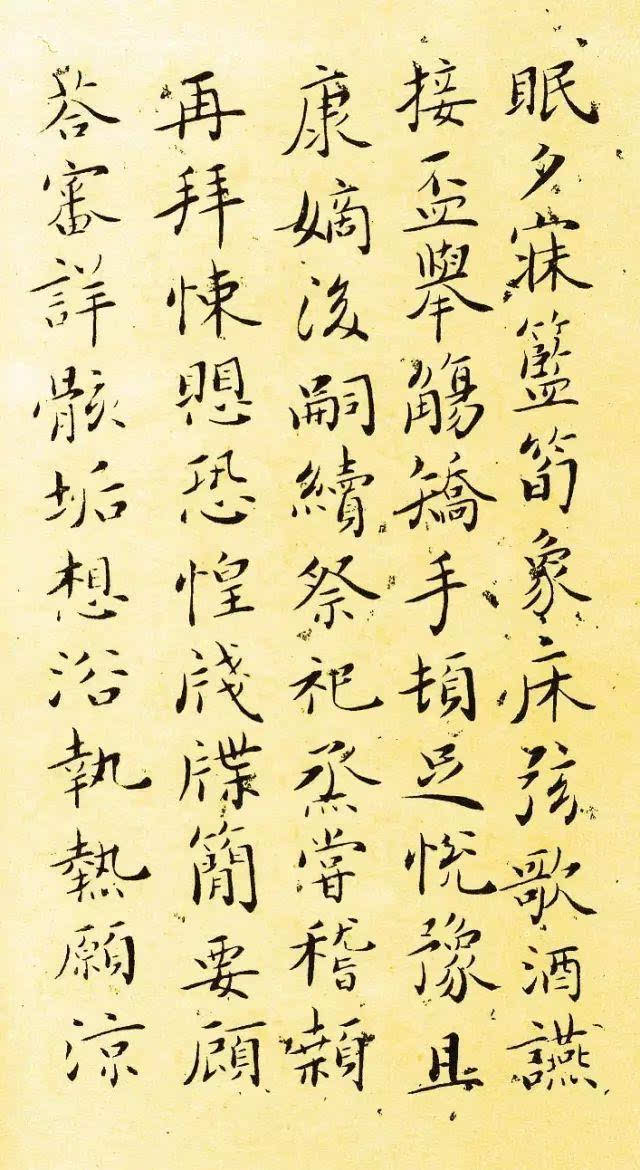 眠夕寐籃笱象床弦歌酒讌
接盃舉觴矯手頓足悅豫且
康嫡後嗣續祭祀烝嘗稽顙
再拜悚愳恐惶牋牒簡要顧
荅審詳骸垢想浴執熱願涼